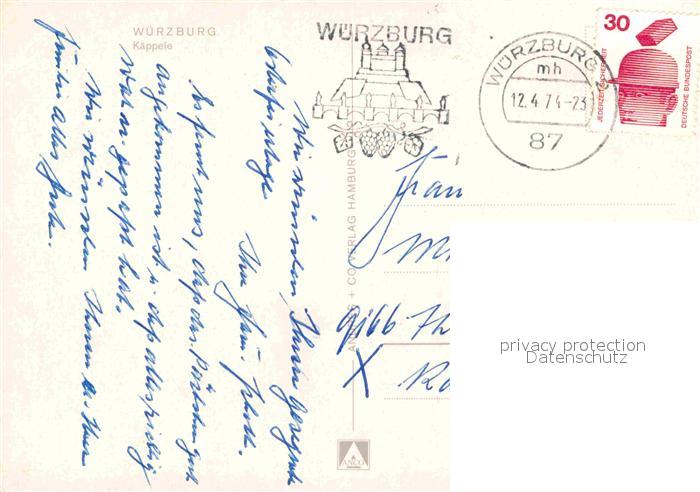 WÜRZBURG
Käppele
Wir wünschen Ihnen gesegnete
Osterfeiertage
Ihre Fam.
Es freut uns, daß das Päckchen gut
angekommen ist u. daß alles richtig
war u. gepaßt hat.
Wir wünschen Ihnen u. Ihrer
Familie alles Gute.
ANDRES + CO VERLAG HAMBURG
ANCO
WÜRZBURG
WÜRZBURG
mh
12.4.74-23
87
30
JEDERZEIT SICHERHEIT
DEUTSCHE BUNDESPOST
Fam
privacy protection
Datenschutz